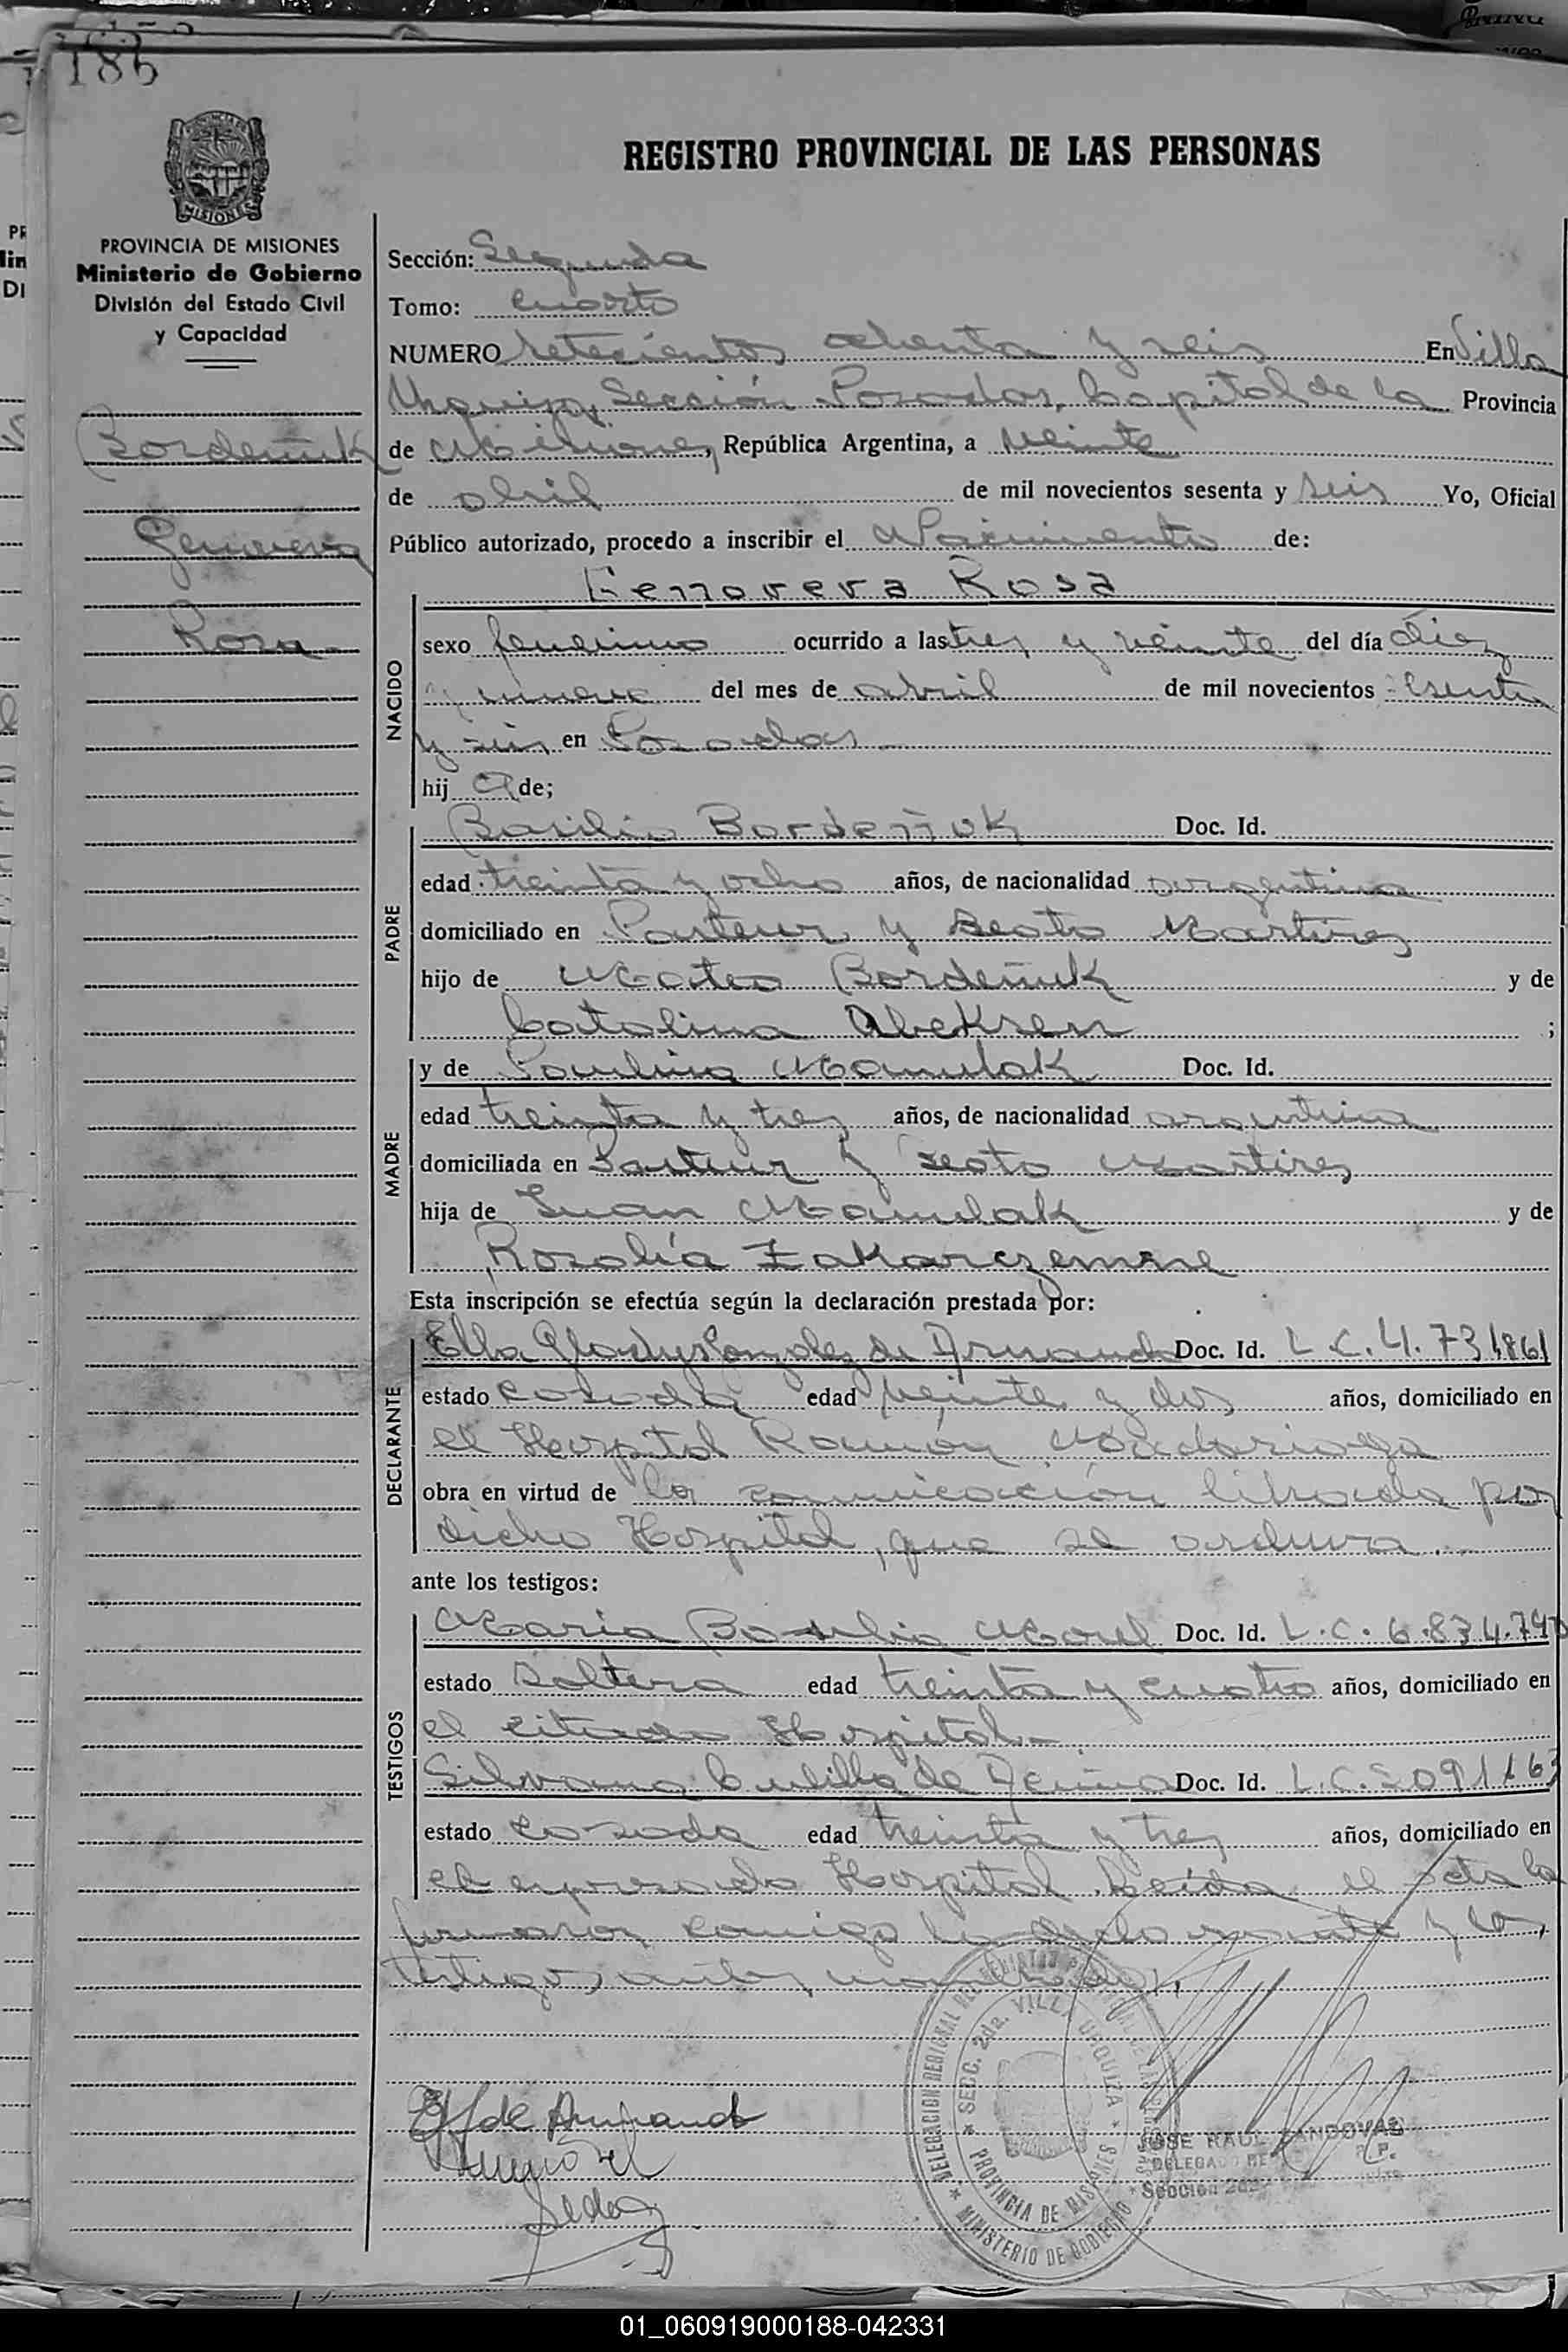 186
PROVINCIA DE MISIONES
Ministerio de Gobierno
División del Estado Civil
y Capacidad
Bordeñuk
Genoveva
Rosa.-
REGISTRO PROVINCIAL DE LAS PERSONAS
Sección: Segunda
Tomo: cuarto
NUMERO setecientos ochenta y seis En Villa
Urquiza, Sección Posadas, Capital de la Provincia
de Misiones, República Argentina, a veinte
de abril de mil novecientos sesenta y seis Yo, Oficial
Público autorizado, procedo a inscribir el Nacimiento de:
Genoveva Rosa
NACIDO
sexo femenino ocurrido a las tres y veinte del día diez
y nueve del mes de abril de mil novecientos sesenta
y seis en Posadas
hij a de;
PADRE
Basilio Bordeñuk Doc. Id.
edad treinta y ocho años, de nacionalidad argentina
domiciliado en Pasteur y Beato Martires
hijo de Mateo Bordeñuk y de
Catalina Abeksen ;
MADRE
y de Paulina Mamulak Doc. Id.
edad treinta y tres años, de nacionalidad argentina
domiciliada en Pasteur y Beato Martires
hija de Juan Mamulak y de
Rosalía
Esta inscripción se efectúa según la declaración prestada por:
DECLARANTE
Elba Gladys Gonzalez de Armando Doc. Id. L.C. 4.731.861
estado casada edad veinte y dos años, domiciliado en
el Hospital Ramón Madariaga
obra en virtud de la comunicación librada por
dicho Hospital, que se archiva.-
ante los testigos:
TESTIGOS
Maria Basilia Morel Doc. Id. L.C. 6.834.790
estado soltera edad treinta y cuatro años, domiciliado en
el citado Hospital.-
Silvana de Doc. Id. L.C. 2091163
estado casada edad treinta y tres años, domiciliado en
el expresado Hospital. Leída el acta la
firmaron conmigo la declarante y los
testigos antes nombrados.
DELEGACION REGIONAL DEL REGISTRO PROVINCIAL DE LAS PERSONAS
SECC. 2da. VILLA URQUIZA
PROVINCIA DE MISIONES
MINISTERIO DE GOBIERNO
EG de Armando
JOSE RAUL SANDOVAL
DELEGADO
Sección 2da.
01_060919000188-042331